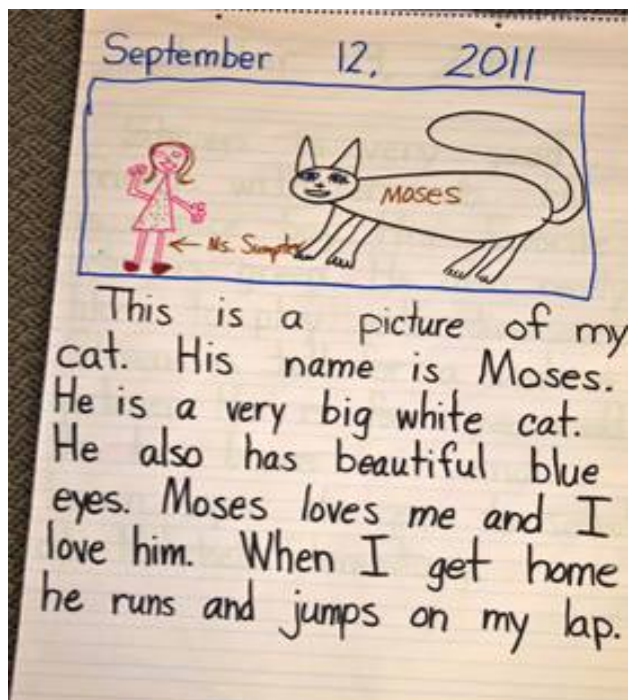 September 12, 2011
Moses
Ms. Sumpter
This is a picture of my
cat. His name is Moses.
He is a very big white cat.
He also has beautiful blue
eyes. Moses loves me and I
love him. When I get home
he runs and jumps on my lap.